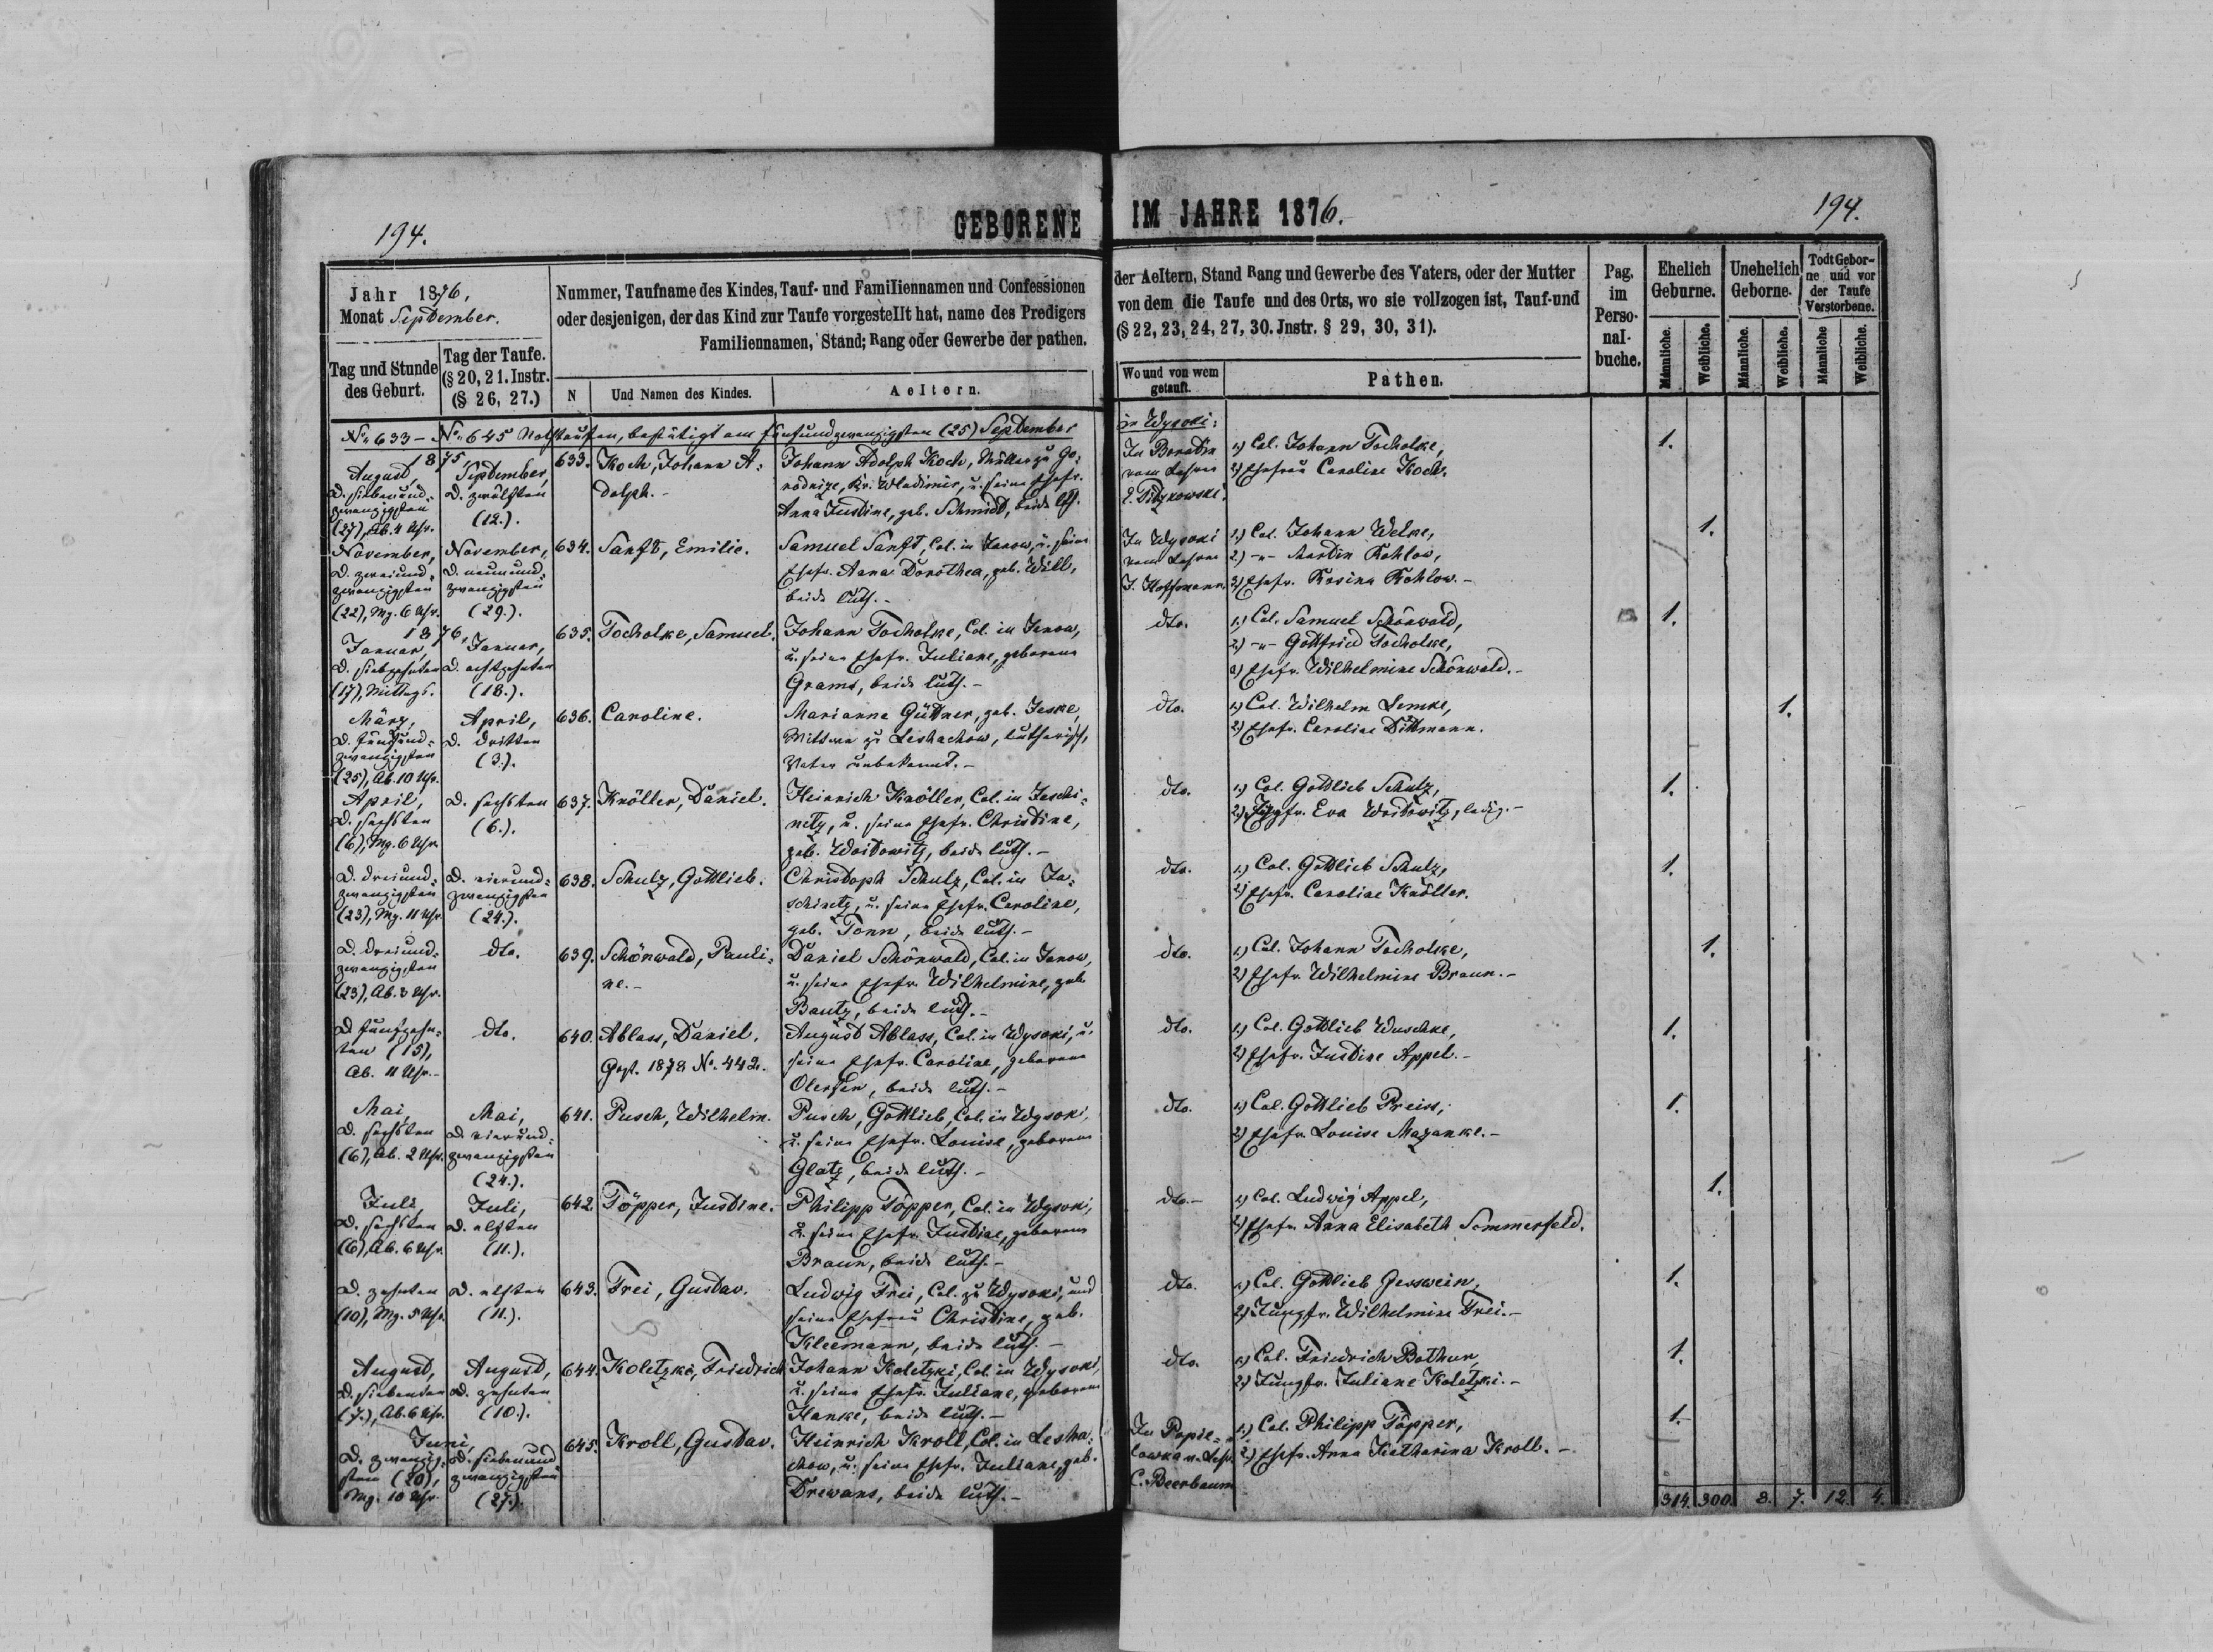 194.
GEBORENE
IM JAHRE 1876.
194.
Jahr 1876,
Monat September.
Tag und Stunde
des Geburt.
Tag der Taufe.
(§ 20, 21. Instr.
(§ 26, 27.)
Nummer, Taufname des Kindes, Tauf- und Familiennamen und Confessionen
oder desjenigen, der das Kind zur Taufe vorgestellt hat, name des Predigers
Familiennamen, Stand; Rang oder Gewerbe der pathen.
N
Und Namen des Kindes.
Aeltern.
der Aeltern, Stand Rang und Gewerbe des Vaters, oder der Mutter
von dem die Taufe und des Orts, wo sie vollzogen ist, Tauf-und
(§ 22, 23, 24, 27, 30. Jnstr. § 29, 30, 31).
Wo und von wem
getauft.
Pathen.
Pag.
im
Perso-
nal-
buche.
Ehelich
Geburne.
Unehelich
Geborne.
Todt Gebor-
ne und vor
der Taufe
Verstorbene.
Männliche.
Weibliche.
Männliche.
Weibliche.
Männliche
Weibliche.
No. 633 - No. 645 Nothtaufen, bestätigt am fünfundzwanzigsten (25) September
in Wysoki:
1875
August,
D. siebenund-
zwanzigsten
(27), Ab. 4 Uhr.
September,
D. zwölften
(12.).
633.
Koch, Johann A-
dolph.-
Johann Adolph Koch, Müller zu Go-
rodnize, Kr. Wladimir, u. seine Ehefr.
Anna Justine, geb. Schmidt, beide lth.
In Boratin
vom Lehrer
1.) Col. Johann Tocholke,
2) Ehefrau Caroline Koch.
1.
November,
D. zweiund-
zwanzigsten
(22), Mg. 6 Uhr.
November,
D. neunund-
zwanzigsten
(29.).
634.
Sanft, Emilie.
Samuel Sanft, Col. in Janow, u. seine
Ehefr. Anna Dorothea, geb. Will,
beide luth.-
In Wysoki
vom Lehrer
J. Hoffmann.
1.) Col. Johann Welke,
2.) -"- Martin Kohlow,
3) Ehefr. Rosina Kohlow.-
1.
1876,
Januar,
D. siebzehnten
(17), Mittags.
Januar,
D. achtzehnten
(18.).
635.
Tocholke, Samuel.
Johann Tocholke, Col. in Janow,
u. seine Ehefr. Juliane, geborene
Grams, beide luth.-
dto.
1.) Col. Samuel Schönwald,
2) -"- Gottfried Tocholke,
3) Ehefr. Wilhelmine Schönwald.-
1.
März,
D. fünfund-
zwanzigsten
(25), Ab. 10 Uhr.
April,
D. dritten
(3.).
636.
Caroline.
Marianna Güttner, geb. Jeske,
Wittwe zu Leshachow, lutherisch,
Vater unbekannt.-
dto.
1.) Col. Wilhelm Lemke,
2) Ehefr. Caroline Dittmann.
1.
April,
D. sechsten
(6), Mg. 6 Uhr.
D. sechsten
(6.).
637.
Knöller, Daniel.
Heinrich Knöller, Col. in Jeschi-
netz, u. seine Ehefr. Christine,
geb. Woitowitz, beide luth.-
dto.
1.) Col. Gottlieb Schulz,
2.) Jungfr. Eva Woitowitz, ledig.-
1.
D. dreiund-
zwanzigsten
(23), Mg. 11 Uhr.
D. vierund-
zwanzigsten
(24.).
638.
Schulz, Gottlieb.
Christoph Schulz, Col. in Je-
schinetz, u. seine Ehefr. Caroline,
geb. Tonn, beide luth.-
dto.
1.) Col. Gottlieb Schulz,
2) Ehefr. Caroline Knöller.
1.
D. dreiund-
zwanzigsten
(23), Ab. 3 Uhr.
dto.
639.
Schönwald, Pauli-
ne.-
Daniel Schönwald, Col. in Janow,
u. seine Ehefr. Wilhelmine, geb
Bautz, beide luth.-
dto.
1.) Col. Johann Tocholke,
2) Ehefr. Wilhelmine Braun.-
1.
D. fünfzehn-
ten (15),
Ab. 11 Uhr.-
dto.
640.
Ablass, Daniel.
Gest. 1878 No. 442.
August Ablass, Col. in Wysoki, u.
seine Ehefr. Caroline, geborene
beide luth.-
dto.
1.) Col. Gottlieb Wuschke,
2) Ehefr. Justine Appel.-
1.
Mai,
D. sechsten
(6), Ab. 2 Uhr.
Mai,
D. vierund-
zwanzigsten
(24.).
641.
Pusch, Wilhelm.
Pusch, Gottlieb, Col. in Wysoki,
u. seine Ehefr. Louise, geborene
Glatz, beide luth.-
dto.
1.) Col. Gottlieb Preiss,
2) Ehefr. Louise Mazanke.-
1.
Juli,
D. sechsten
(6), Ab. 6 Uhr.
Juli,
D. elften
(11.).
642.
Töpper, Justine.
Philipp Töpper, Col. in Wysoki,
u. seine Ehefr. Justine, geborene
Braun, beide luth.-
dto.-
1.) Col. Ludwig Appel,
2) Ehefr. Anna Elisabeth Sommerfeld.
1.
D. zehnten
(10), Mg. 5 Uhr.
D. elften
(11.).
643.
Frei, Gustav.
Ludwig Frei, Col. zu Wysoki, und
seine Ehefrau Christine, geb.
Kleemann, beide luth.-
dto.
1.) Col. Gottlieb Gesswein,
2) Jungfr. Wilhelmine Frei.-
1.
August,
D. siebenten
(7.), Ab. 6 Uhr.
August,
D. zehnten
(10.).
644.
Koletzki, Friedrich
Johann Koletzki, Col. in Wysoki,
u. seine Ehefr. Juliane, geborene
Hanke, beide luth.-
dto.
1.) Col. Friedrich Bothur,
2.) Jungfr. Juliane Koletzki.-
1.
Juni,
D. zwanzig-
sten (20),
Mg. 10 Uhr.
D. siebenund
zwanzigsten
(27.).
645.
Kroll, Gustav.
Heinrich Kroll, Col. in Lesha-
chow, u. seine Ehefr. Juliane, geb.
Drewans, beide luth.-
In Popie-
lowka v. Lehr.
C. Beerbaum
1.) Col. Philipp Töpper,
2.) Ehefr. Anna Katharina Kroll.-
1.-
314. 300. 8. 7. 12. 4.